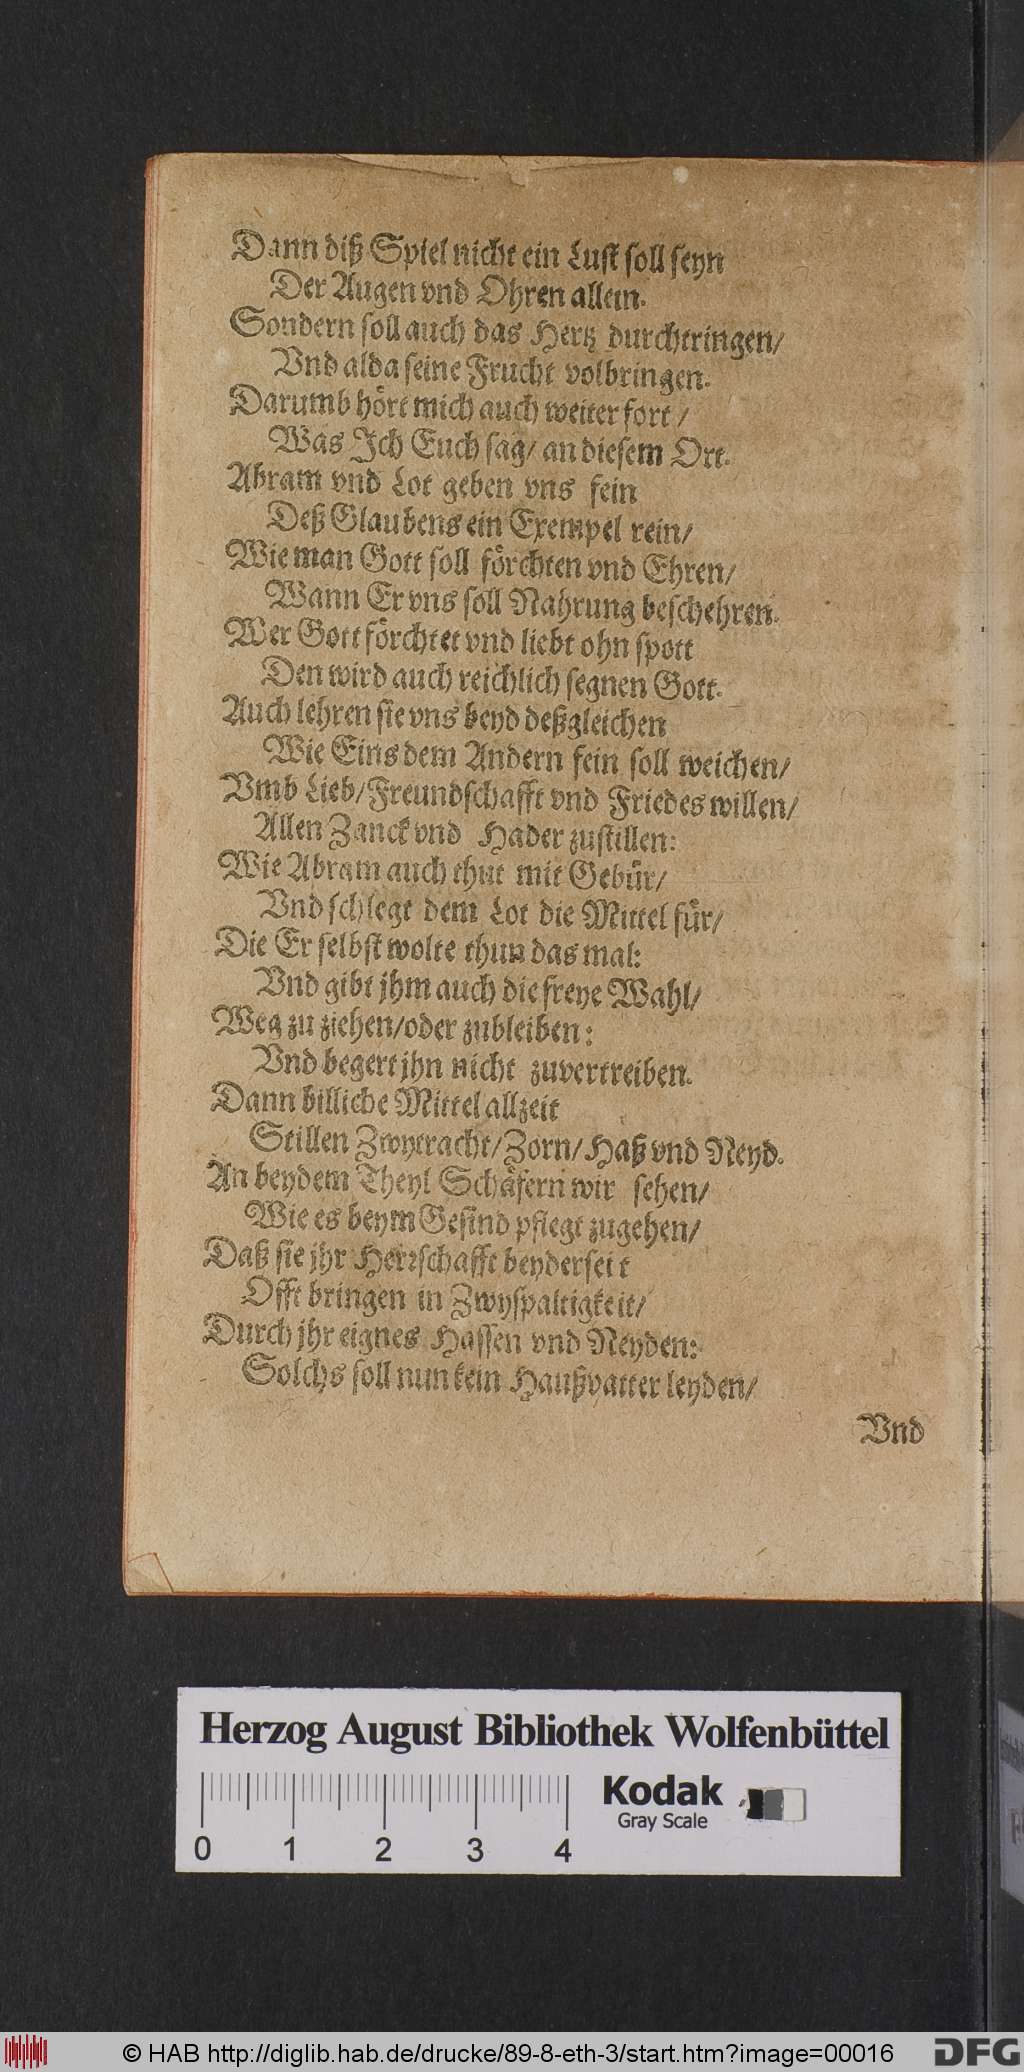 Dann diß Spiel nicht ein Lust soll seyn
Der Augen vnd Ohren allein.
Sondern soll auch das Hertz durchtringen/
Vnd alda seine Frucht volbringen.
Darumb hört mich auch weiter fort/
Was Ich Euch sag/ an diesem Ort.
Abram vnd Lot geben vns fein
Deß Glaubens ein Exempel rein/
Wie man Gott soll förchten vnd Ehren/
Wann Er vns soll Nahrung beschehren.
Wer Gott förchtet vnd liebt ohn spott
Den wird auch reichlich segnen Gott.
Auch lehren sie vns beyd deßgleichen
Wie Eins dem Andern fein soll weichen/
Vmb Lieb/ Freundschafft vnd Friedes willen/
Allen Zanck vnd Hader zustillen:
Wie Abram auch thut mit Gebür/
Vnd schlegt dem Lot die Mittel für/
Die Er selbst wolte thun das mal:
Vnd gibt jhm auch die freye Wahl/
Weg zu ziehen/ oder zubleiben:
Vnd begert jhn nicht zuvertreiben.
Dann billiche Mittel allzeit
Stillen Zwytracht/ Zorn/ Haß vnd Neyd.
An beydem Theyl Schäfern wir sehen/
Wie es beym Gesind pflegt zugehen/
Daß sie jhr Herrschafft beyderseit
Offt bringen in Zwyspaltigkeit/
Durch jhr eignes Hassen vnd Neyden:
Solchs soll nun kein Haußvatter leyden/
Vnd
Herzog August Bibliothek Wolfenbüttel
0 1 2 3 4
Kodak
Gray Scale
© HAB http://diglib.hab.de/drucke/89-8-eth-3/start.htm?image=00016
DFG